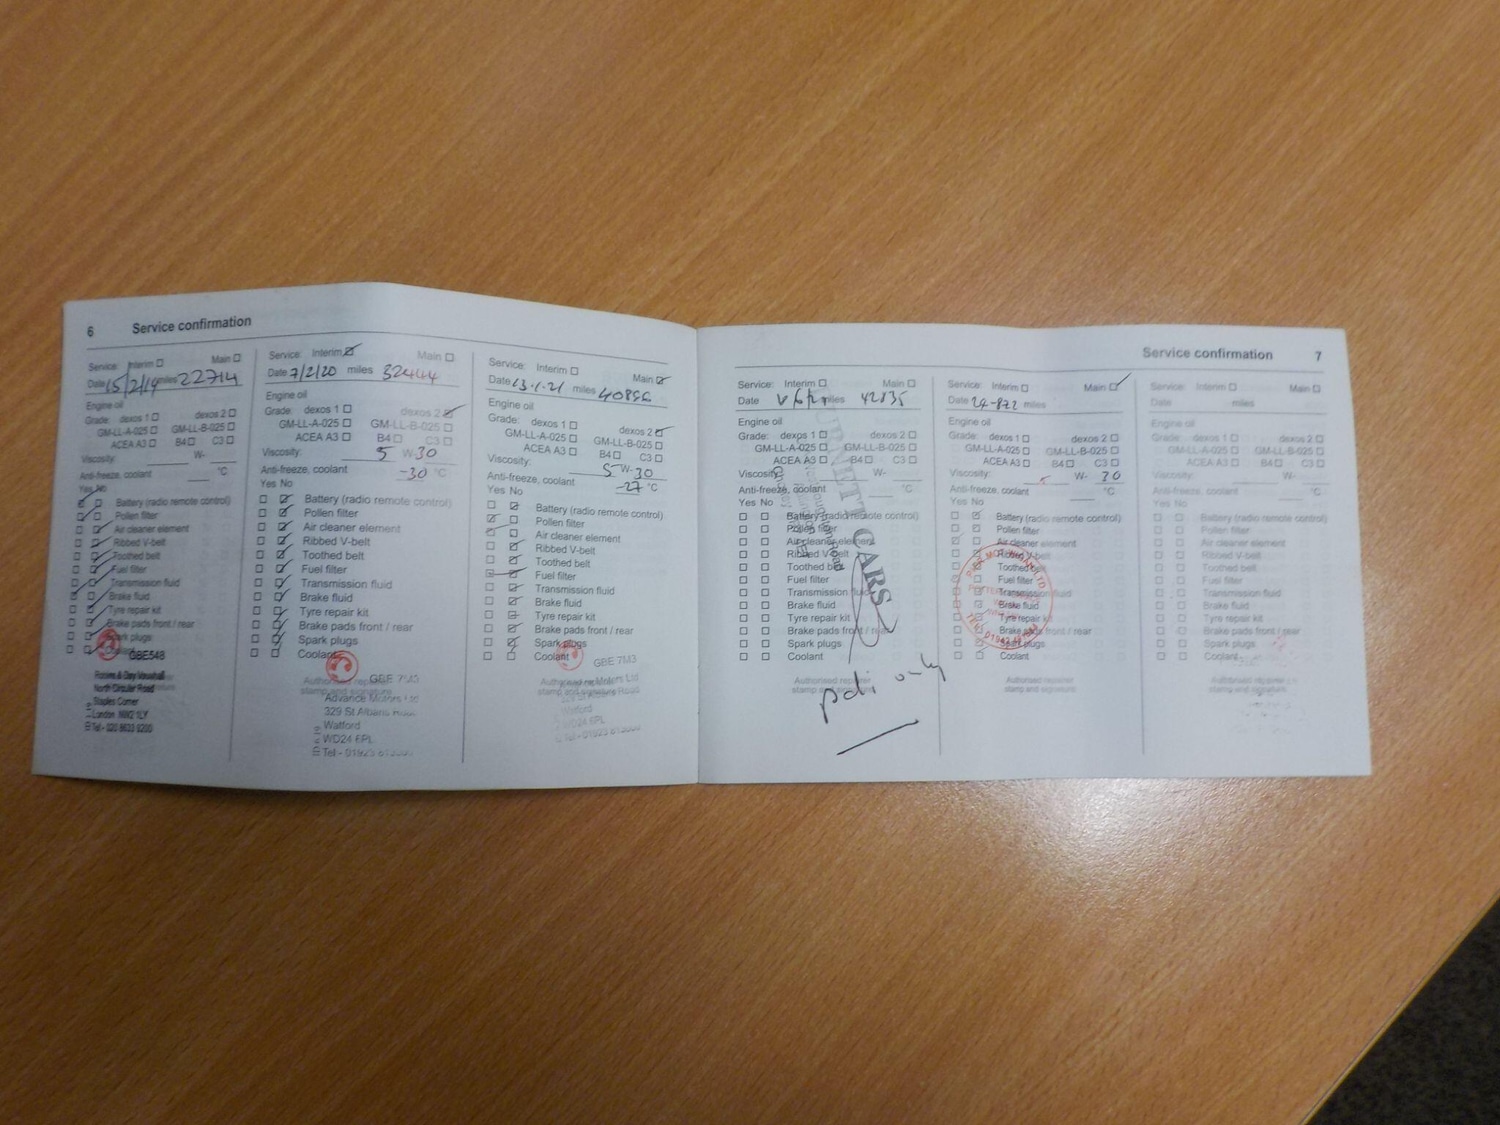 6 Service confirmation
Service: Interim ☐ Main ☐
Date 15/2/19 miles 22714
Engine oil
Grade: dexos 1 ☐ dexos 2 ☐
GM-LL-A-025 ☐ GM-LL-B-025 ☐
ACEA A3 ☐ B4 ☐ C3 ☐
Viscosity: W-
Anti-freeze, coolant °C
Yes No
Battery (radio remote control)
Pollen filter
Air cleaner element
Ribbed V-belt
Toothed belt
Fuel filter
Transmission fluid
Brake fluid
Tyre repair kit
Brake pads front / rear
Spark plugs
GBE548
North Circular Road
Staples Corner
London NW2 1LY
Tel - 020 8633 9200
Service: Interim ☑ Main ☐
Date 7/2/20 miles 32444
Engine oil
Grade: dexos 1 ☐ dexos 2 ☑
GM-LL-A-025 ☐ GM-LL-B-025 ☐
ACEA A3 ☐ B4 ☐ C3 ☐
Viscosity: 5 W-30
Anti-freeze, coolant -30 °C
Yes No
Battery (radio remote control)
Pollen filter
Air cleaner element
Ribbed V-belt
Toothed belt
Fuel filter
Transmission fluid
Brake fluid
Tyre repair kit
Brake pads front / rear
Spark plugs
Coolant
GBE 7M3
Advance Motors Ltd
329 St Albans Road
Watford
WD24 6PL
Tel - 01923
Service: Interim ☐ Main ☑
Date 13.1.21 miles
Engine oil
Grade: dexos 1 ☐ dexos 2 ☑
GM-LL-A-025 ☐ GM-LL-B-025 ☐
ACEA A3 ☐ B4 ☐ C3 ☐
Viscosity: 5 W-30
Anti-freeze, coolant -27 °C
Yes No
Battery (radio remote control)
Pollen filter
Air cleaner element
Ribbed V-belt
Toothed belt
Fuel filter
Transmission fluid
Brake fluid
Tyre repair kit
Brake pads front / rear
Spark plugs
Coolant
GBE 7M3
Motors Ltd
Watford
WD24 6PL
Tel - 01923
Service confirmation 7
Service: Interim ☐ Main ☐
Date miles 42835
Engine oil
Grade: dexos 1 ☐ dexos 2 ☐
GM-LL-A-025 ☐ GM-LL-B-025 ☐
ACEA A3 ☐ B4 ☐ C3 ☐
Viscosity: W-
Anti-freeze, coolant °C
Yes No
Battery (radio remote control)
Pollen filter
Air cleaner element
Ribbed V-belt
Toothed belt
Fuel filter
Transmission fluid
Brake fluid
Tyre repair kit
Brake pads front / rear
Spark plugs
Coolant
Authorised repairer
stamp and signature
CARS
pdi only
Service: Interim ☐ Main ☑
Date miles
Engine oil
Grade: dexos 1 ☐ dexos 2 ☐
GM-LL-A-025 ☐ GM-LL-B-025 ☐
ACEA A3 ☐ B4 ☐ C3 ☐
Viscosity: 5 W- 30
Anti-freeze, coolant °C
Yes No
Battery (radio remote control)
Pollen filter
Air cleaner element
Ribbed V-belt
Toothed belt
Fuel filter
Transmission fluid
Brake fluid
Tyre repair kit
Brake pads front / rear
Spark plugs
Coolant
Authorised repairer
stamp and signature
Service: Interim ☐ Main ☐
Date miles
Engine oil
Grade: dexos 1 ☐ dexos 2 ☐
GM-LL-A-025 ☐ GM-LL-B-025 ☐
ACEA A3 ☐ B4 ☐ C3 ☐
Viscosity: W-
Anti-freeze, coolant °C
Yes No
Battery (radio remote control)
Pollen filter
Air cleaner element
Ribbed V-belt
Toothed belt
Fuel filter
Transmission fluid
Brake fluid
Tyre repair kit
Brake pads front / rear
Spark plugs
Coolant
Authorised repairer
stamp and signature